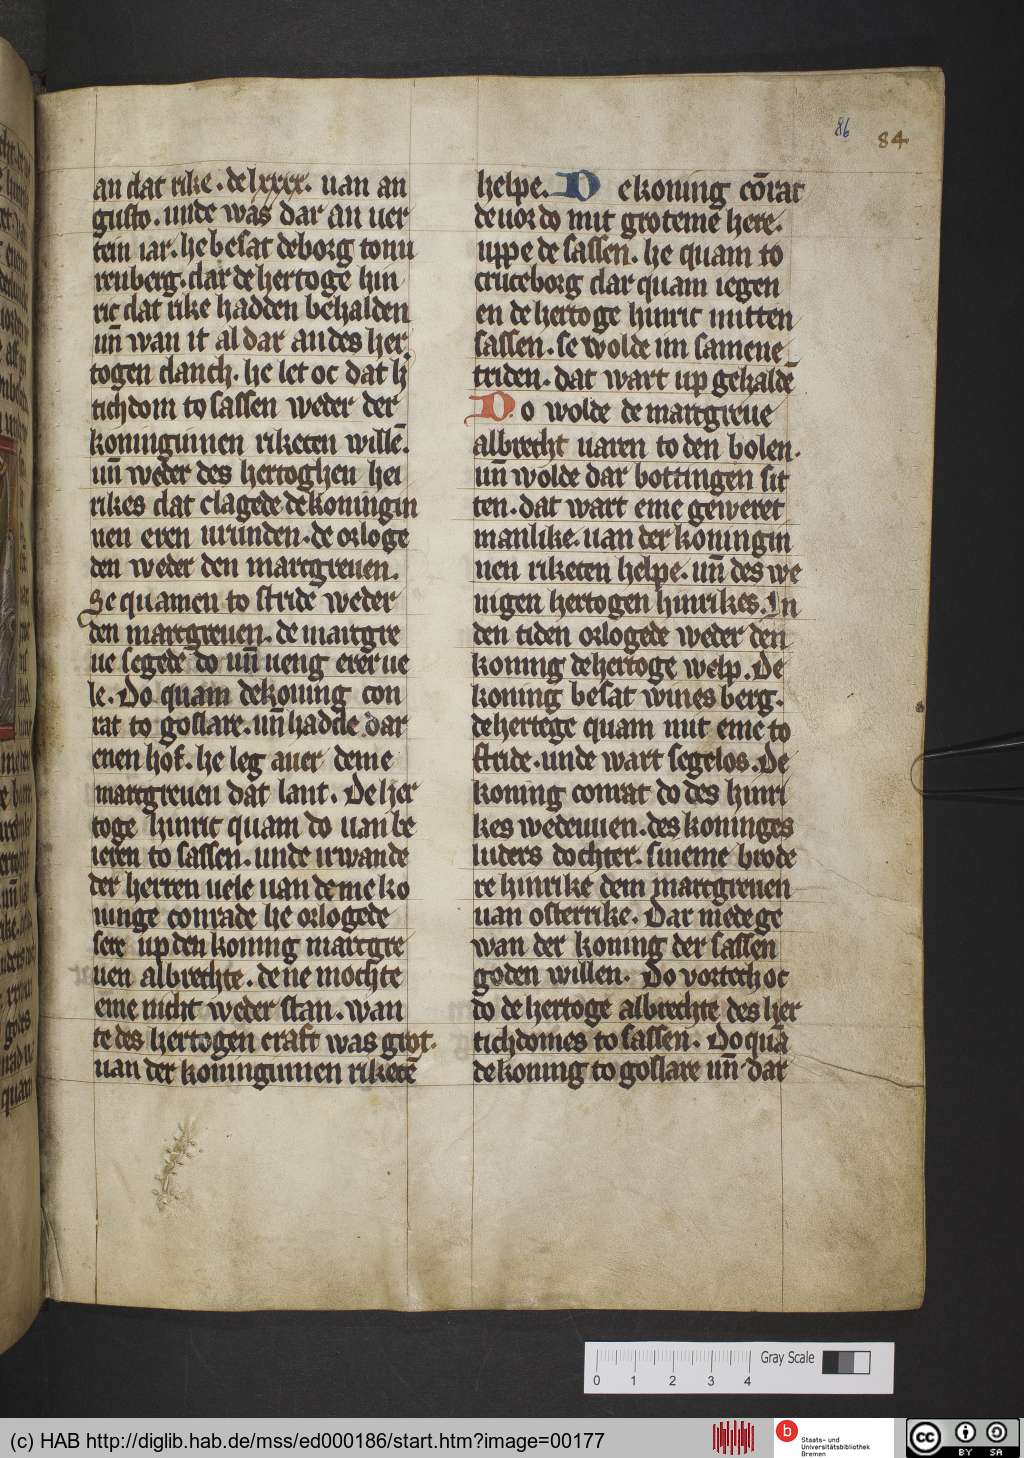 86 84
an dat rike. de lxxxx. uan an
gusto. unde was dar an uer
tein iar. he besat de borg to nu
renberg. dar de hertoge hin
ric dat rike hadden behalden
uñ wan it al dar an des her
togen danch. he let oc dat h
tichdom to sassen weder der
koninginnen riketen wille̅.
uñ weder des hertoghen hei
rikes dat clagede de koningin
nen eren urunden. de orloge
den weder den marcgreuen.
Se quamen to stride weder
den marcgreuen. de marcgre
ue segede do uñ ueng erer ue
le. Do quam de koning con
rat to goslare. uñ hadde dar
enen hof. he leg auer deme
marcgreuen dat lant. De her
toge hinric quam do uan be
ieren to sassen. unde irwande
der herren uele uan deme ko
ninge conrade he orlogede
sere up den koning marcgre
uen albrechte. de ne mochte
eme nicht weder stan. wan
te des hertogen craft was grot.
uan der koninginnen rikete̅
helpe. De koning co̅rat
de uor do mit groteme here.
uppe de sassen. he quam to
cruceborg dar quam iegen
en de hertoge hinric mitten
sassen. se wolde im samene
triden. dat wart up gehalde̅
Do wolde de marcgreue
albrecht uaren to den bolen.
uñ wolde dar bottingen sit
ten. dat wart eme geweret
manlike. uan der koningin
nen riketen helpe. uñ des we
nigen hertogen hinrikes. In
den tiden orlogede weder den
koning de hertoge welp. De
koning besat wines berg.
de hertege quam mit eme to
stride. unde wart segelos. De
koning conrat do des hinri
kes wedewen. des koninges
luders dochter. sineme brode
re hinrike dem marcgreuen
uan osterrike. Dar mede ge
wan der koning der sassen
goden willen. Do vortech oc
do de hertoge albrechte des her
tichdomes to sassen. Do qua̅
de koning to goslare uñ dar
0 1 2 3 4 Gray Scale
(c) HAB http://diglib.hab.de/mss/ed000186/start.htm?image=00177
b Staats- und
Universitätsbibliothek
Bremen
cc BY SA